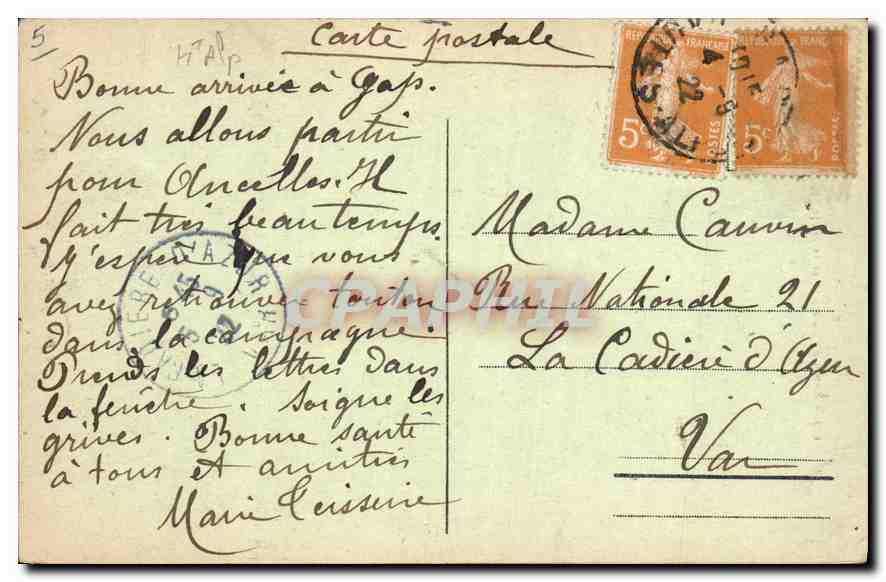 5
Hte Alp
Carte postale
REPUBLIQUE FRANÇAISE
5c
POSTES
REPUBLIQUE FRANÇAISE
5c
POSTES
4 - 9
22
Bonne arrivée à Gap.
Nous allons partir
pour Ancelles. Il
fait très beau temps.
J'espère que vous
avez retrouvé tonton
dans la campagne.
Prends les lettres dans
la fenêtre. Soigne les
grives. Bonne santé
à tous et amitiés
Marie Teisseire
CPAPHIL
Madame Cauvin
Rue Nationale 21
La Cadière d'Azur
Var